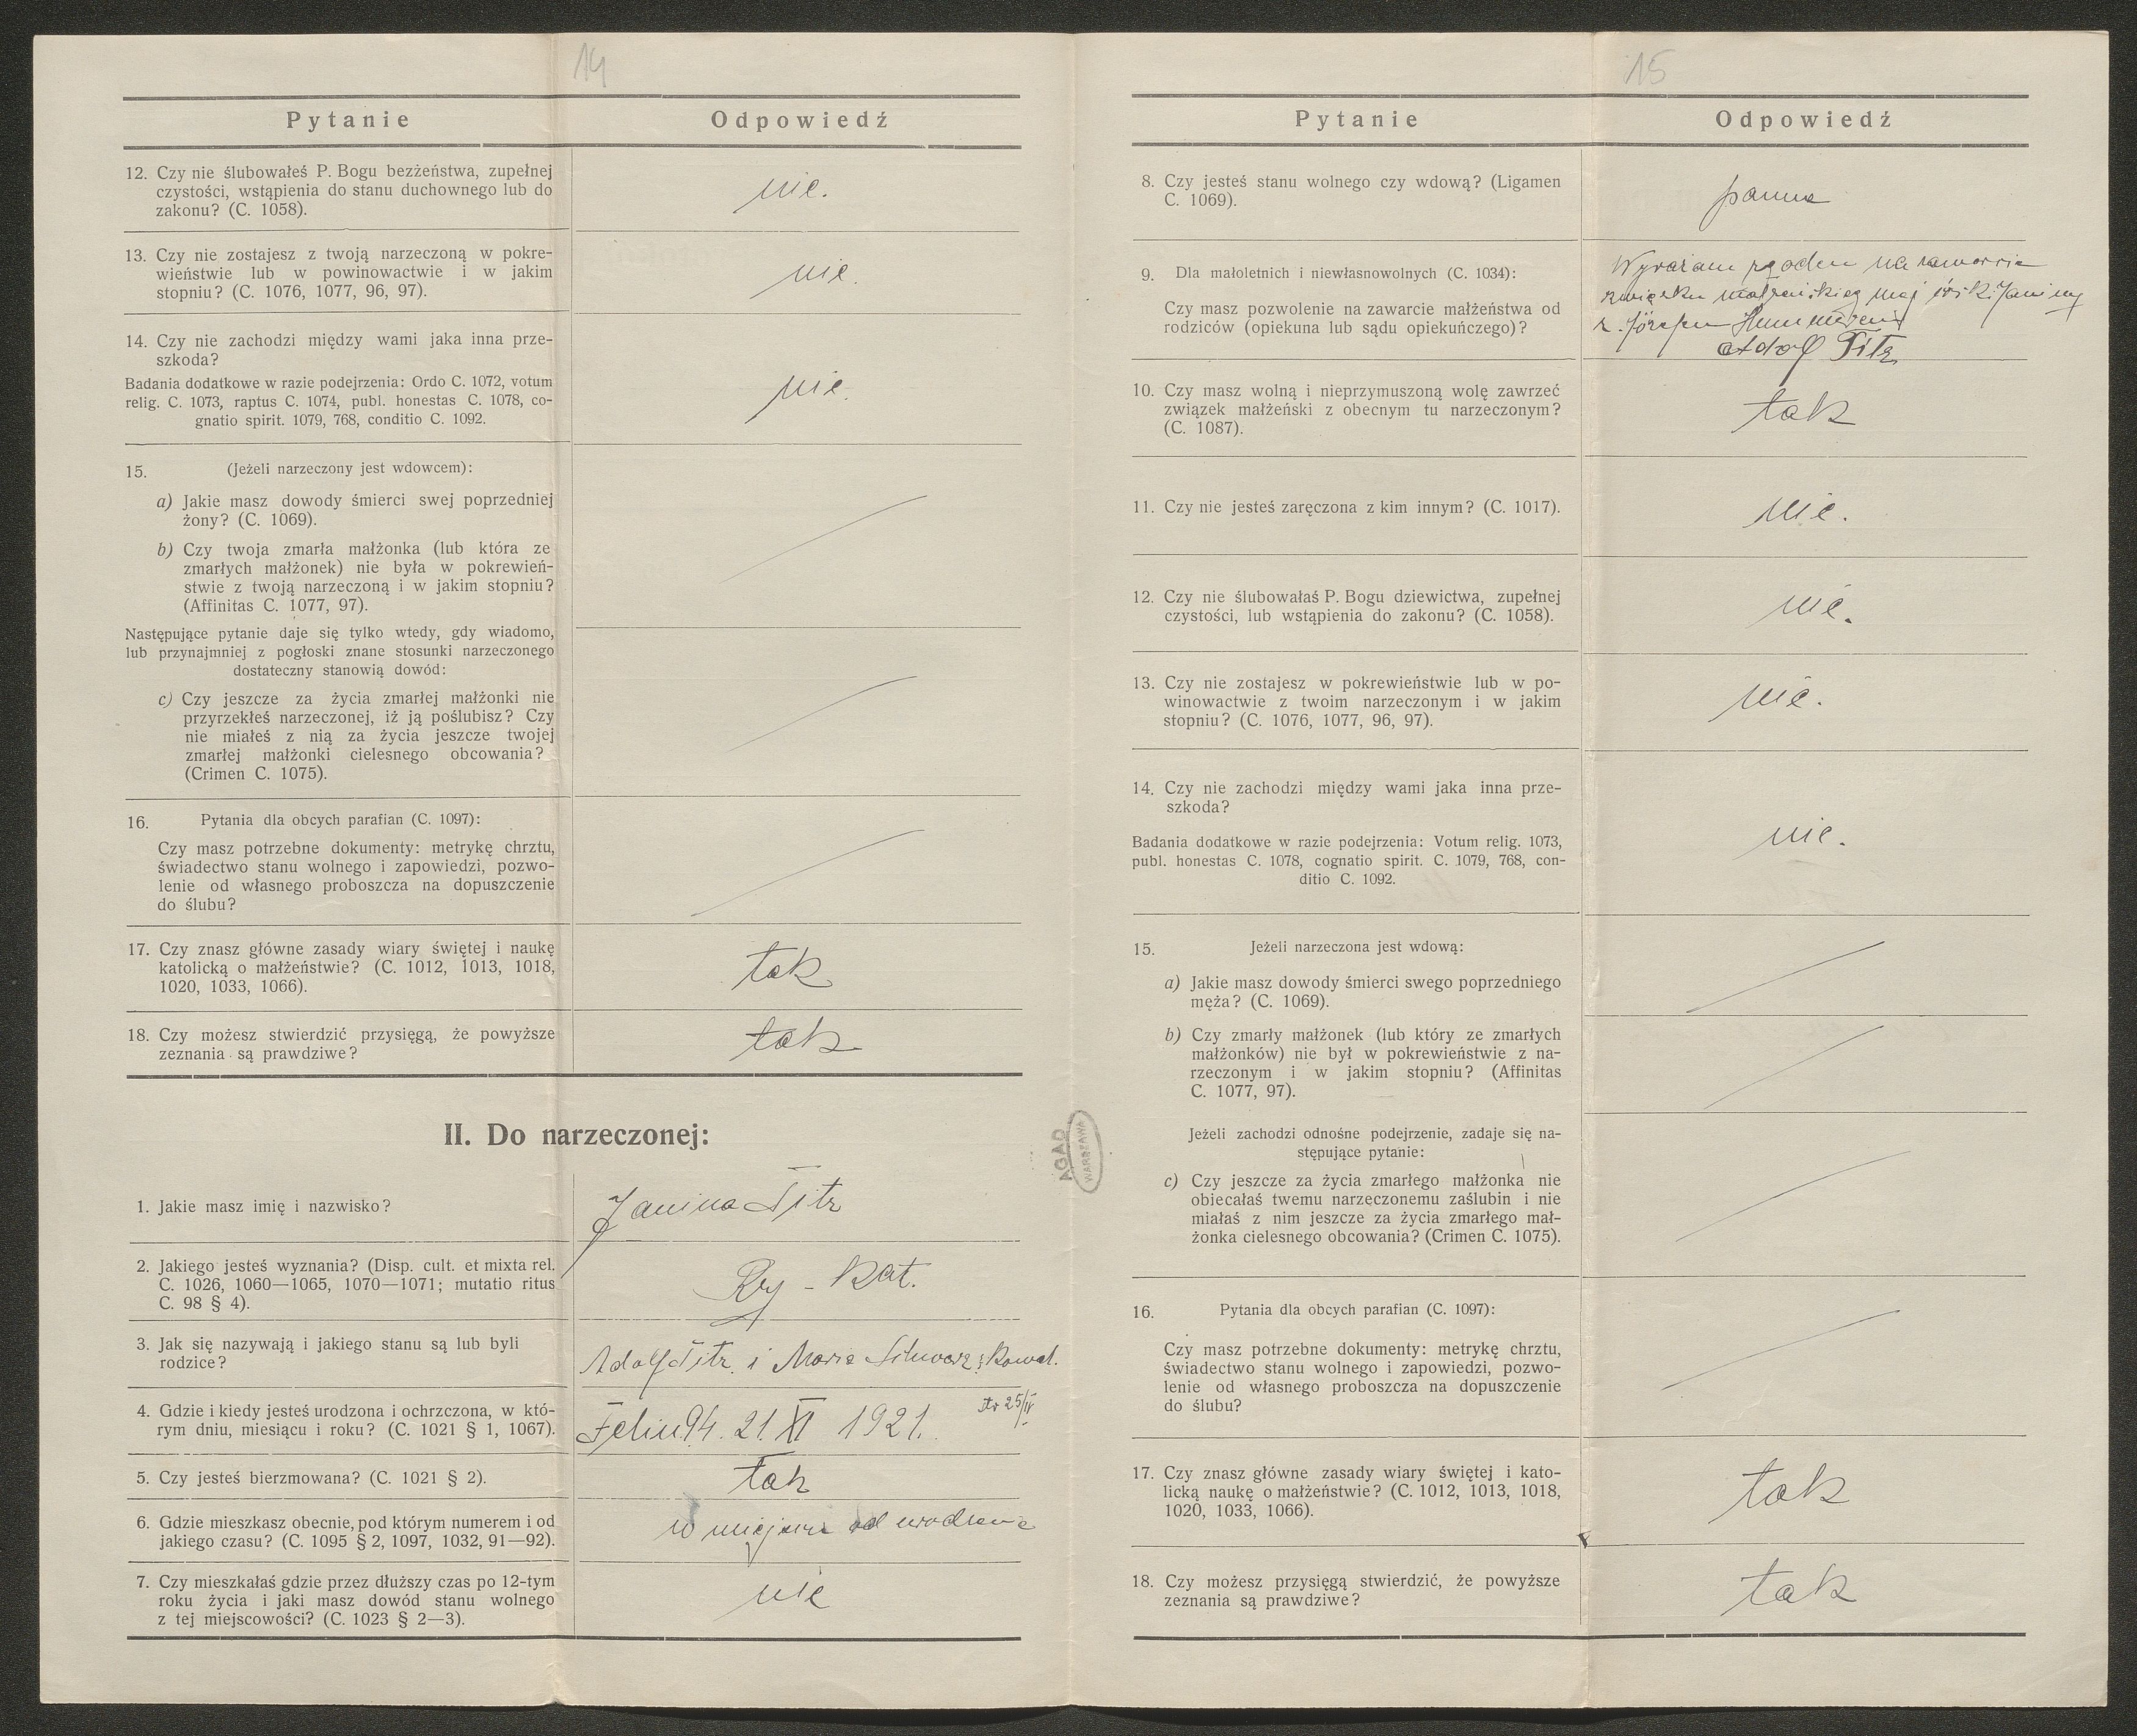 14
Pytanie Odpowiedź
12. Czy nie ślubowałeś P. Bogu bezżeństwa, zupełnej
czystości, wstąpienia do stanu duchownego lub do
zakonu? (C. 1058).
nie.
13. Czy nie zostajesz z twoją narzeczoną w pokre-
wieństwie lub w powinowactwie i w jakim
stopniu? (C. 1076, 1077, 96, 97).
nie.
14. Czy nie zachodzi między wami jaka inna prze-
szkoda?
Badania dodatkowe w razie podejrzenia: Ordo C. 1072, votum
relig. C. 1073, raptus C. 1074, publ. honestas C. 1078, co-
gnatio spirit. 1079, 768, conditio C. 1092.
nie.
15. (Jeżeli narzeczony jest wdowcem):
a) Jakie masz dowody śmierci swej poprzedniej
żony? (C. 1069).
b) Czy twoja zmarła małżonka (lub która ze
zmarłych małżonek) nie była w pokrewień-
stwie z twoją narzeczoną i w jakim stopniu?
(Affinitas C. 1077, 97).
Następujące pytanie daje się tylko wtedy, gdy wiadomo,
lub przynajmniej z pogłoski znane stosunki narzeczonego
dostateczny stanowią dowód:
c) Czy jeszcze za życia zmarłej małżonki nie
przyrzekłeś narzeczonej, iż ją poślubisz? Czy
nie miałeś z nią za życia jeszcze twojej
zmarłej małżonki cielesnego obcowania?
(Crimen C. 1075).
16. Pytania dla obcych parafian (C. 1097):
Czy masz potrzebne dokumenty: metrykę chrztu,
świadectwo stanu wolnego i zapowiedzi, pozwo-
lenie od własnego proboszcza na dopuszczenie
do ślubu?
17. Czy znasz główne zasady wiary świętej i naukę
katolicką o małżeństwie? (C. 1012, 1013, 1018,
1020, 1033, 1066).
tak
18. Czy możesz stwierdzić przysięgą, że powyższe
zeznania są prawdziwe?
tak
II. Do narzeczonej:
1. Jakie masz imię i nazwisko?
Janina Titz
2. Jakiego jesteś wyznania? (Disp. cult. et mixta rel.
C. 1026, 1060—1065, 1070—1071; mutatio ritus
C. 98 § 4).
Rzy - kat.
3. Jak się nazywają i jakiego stanu są lub byli
rodzice?
Adolf Titz i Maria
4. Gdzie i kiedy jesteś urodzona i ochrzczona, w któ-
rym dniu, miesiącu i roku? (C. 1021 § 1, 1067).
94. 21. XI 1921.
5. Czy jesteś bierzmowana? (C. 1021 § 2).
tak
6. Gdzie mieszkasz obecnie, pod którym numerem i od
jakiego czasu? (C. 1095 § 2, 1097, 1032, 91—92).
w miejscu od urodzenia
7. Czy mieszkałaś gdzie przez dłuższy czas po 12-tym
roku życia i jaki masz dowód stanu wolnego
z tej miejscowości? (C. 1023 § 2—3).
nie
AGAD
WARSZAWA
15
Pytanie Odpowiedź
8. Czy jesteś stanu wolnego czy wdową? (Ligamen
C. 1069).
panna
9. Dla małoletnich i niewłasnowolnych (C. 1034):
Czy masz pozwolenie na zawarcie małżeństwa od
rodziców (opiekuna lub sądu opiekuńczego)?
Wyrażam zgodę na zawarcie
związku małżeńskieg mej córki Janiny
z Józefem
Adolf Titz
10. Czy masz wolną i nieprzymuszoną wolę zawrzeć
związek małżeński z obecnym tu narzeczonym?
(C. 1087).
tak
11. Czy nie jesteś zaręczona z kim innym? (C. 1017).
nie.
12. Czy nie ślubowałaś P. Bogu dziewictwa, zupełnej
czystości, lub wstąpienia do zakonu? (C. 1058).
nie.
13. Czy nie zostajesz w pokrewieństwie lub w po-
winowactwie z twoim narzeczonym i w jakim
stopniu? (C. 1076, 1077, 96, 97).
nie.
14. Czy nie zachodzi między wami jaka inna prze-
szkoda?
Badania dodatkowe w razie podejrzenia: Votum relig. 1073,
publ. honestas C. 1078, cognatio spirit. C. 1079, 768, con-
ditio C. 1092.
nie.
15. Jeżeli narzeczona jest wdową:
a) Jakie masz dowody śmierci swego poprzedniego
męża? (C. 1069).
b) Czy zmarły małżonek (lub który ze zmarłych
małżonków) nie był w pokrewieństwie z na-
rzeczonym i w jakim stopniu? (Affinitas
C. 1077, 97).
Jeżeli zachodzi odnośne podejrzenie, zadaje się na-
stępujące pytanie:
c) Czy jeszcze za życia zmarłego małżonka nie
obiecałaś twemu narzeczonemu zaślubin i nie
miałaś z nim jeszcze za życia zmarłego mał-
żonka cielesnego obcowania? (Crimen C. 1075).
16. Pytania dla obcych parafian (C. 1097):
Czy masz potrzebne dokumenty: metrykę chrztu,
świadectwo stanu wolnego i zapowiedzi, pozwo-
lenie od własnego proboszcza na dopuszczenie
do ślubu?
17. Czy znasz główne zasady wiary świętej i kato-
licką naukę o małżeństwie? (C. 1012, 1013, 1018,
1020, 1033, 1066).
tak
18. Czy możesz przysięgą stwierdzić, że powyższe
zeznania są prawdziwe?
tak